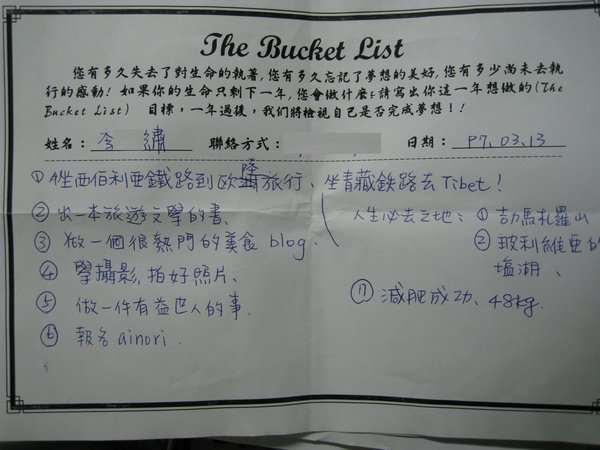 The Bucket List
您有多久失去了對生命的執著,您有多久忘記了夢想的美好,您有多少尚未去執
行的感動! 如果你的生命只剩下一年,您會做什麼?請寫出你這一年想做的(The
Bucket List) 目標,一年過後,我們將檢視自己是否完成夢想!!
姓名: 李 繡 聯絡方式: 日期: 97.03.13
① 坐西伯利亞鐵路到歐陸旅行、坐青藏鉄路去Tibet!
② 出一本旅遊文學的書、
③ 做一個很熱門的美食 blog、
④ 學攝影,拍好照片、
⑤ 做一件有益世人的事、
⑥ 報名 ainori.
人生必去之地: ① 吉力馬札羅山
② 玻利維亞的
塩湖、
⑦ 減肥成功、48kg.